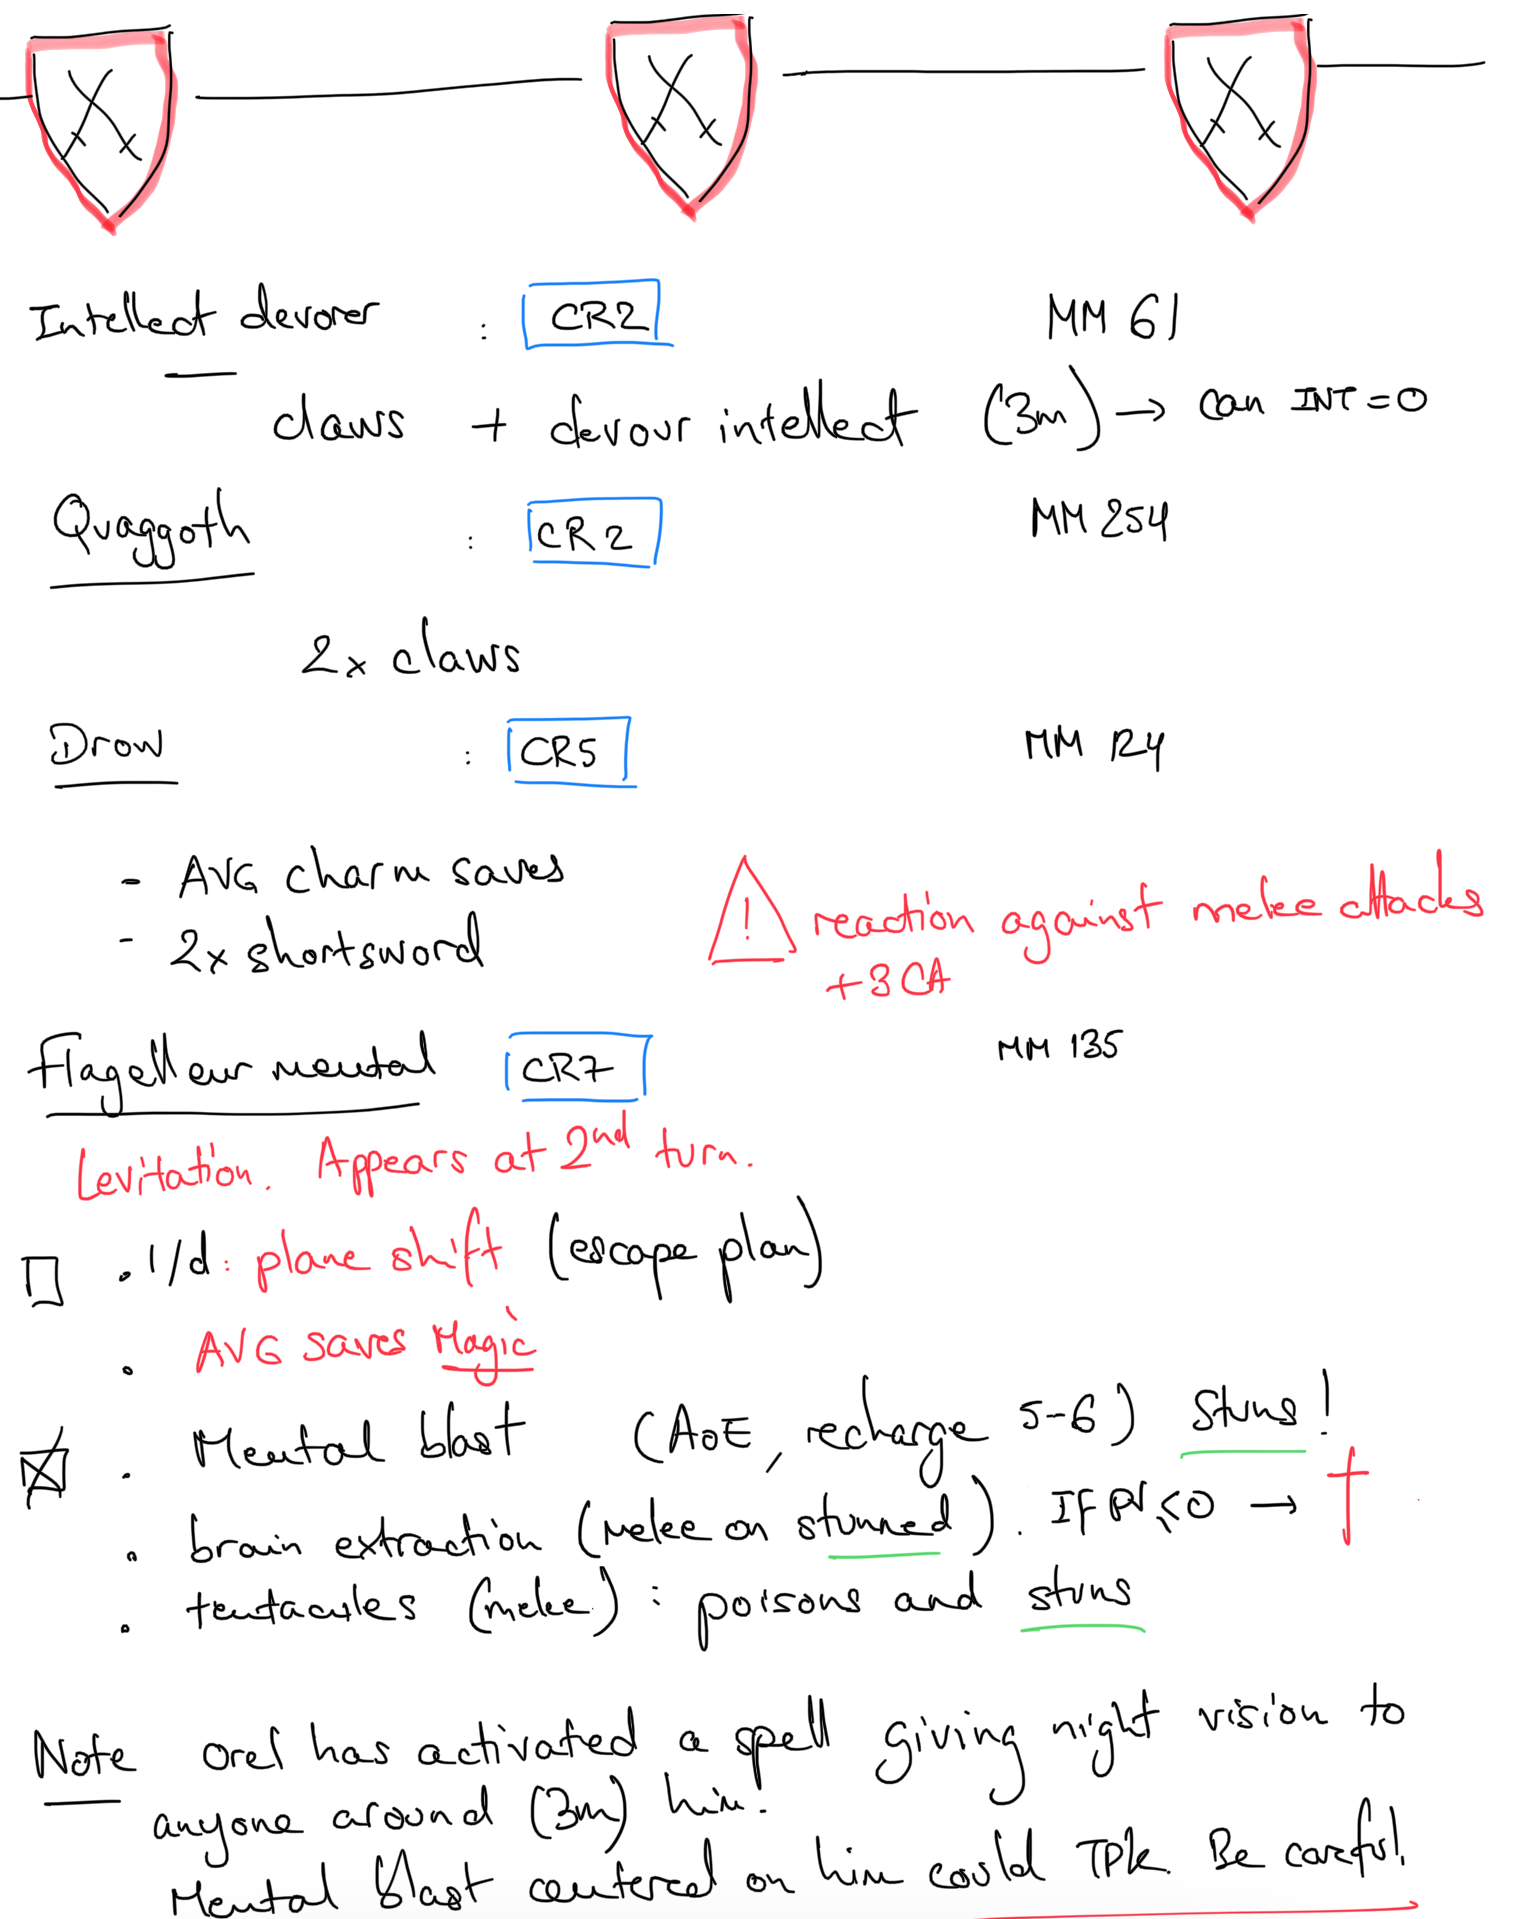 Intellect devorer : CR2 MM 61
claws + devour intellect (3m) → can INT = 0
Quaggoth : CR 2 MM 254
2x claws
Drow : CR5 MM 124
- AVG charm saves
- 2x shortsword
! reaction against melee attacks
+3 CA
Flagelleur mental CR7 MM 135
Levitation. Appears at 2nd turn.
☐ . 1/d : plane shift (escape plan)
. AVG saves Magic
☒ . Mental blast (AoE, recharge 5-6) stuns!
. brain extraction (melee on stunned). IF PV ≤ 0 → †
. tentacules (melee) : poisons and stuns
Note Orel has activated a spell giving night vision to
anyone around (3m) him!
Mental blast centered on him could TPK. Be careful!